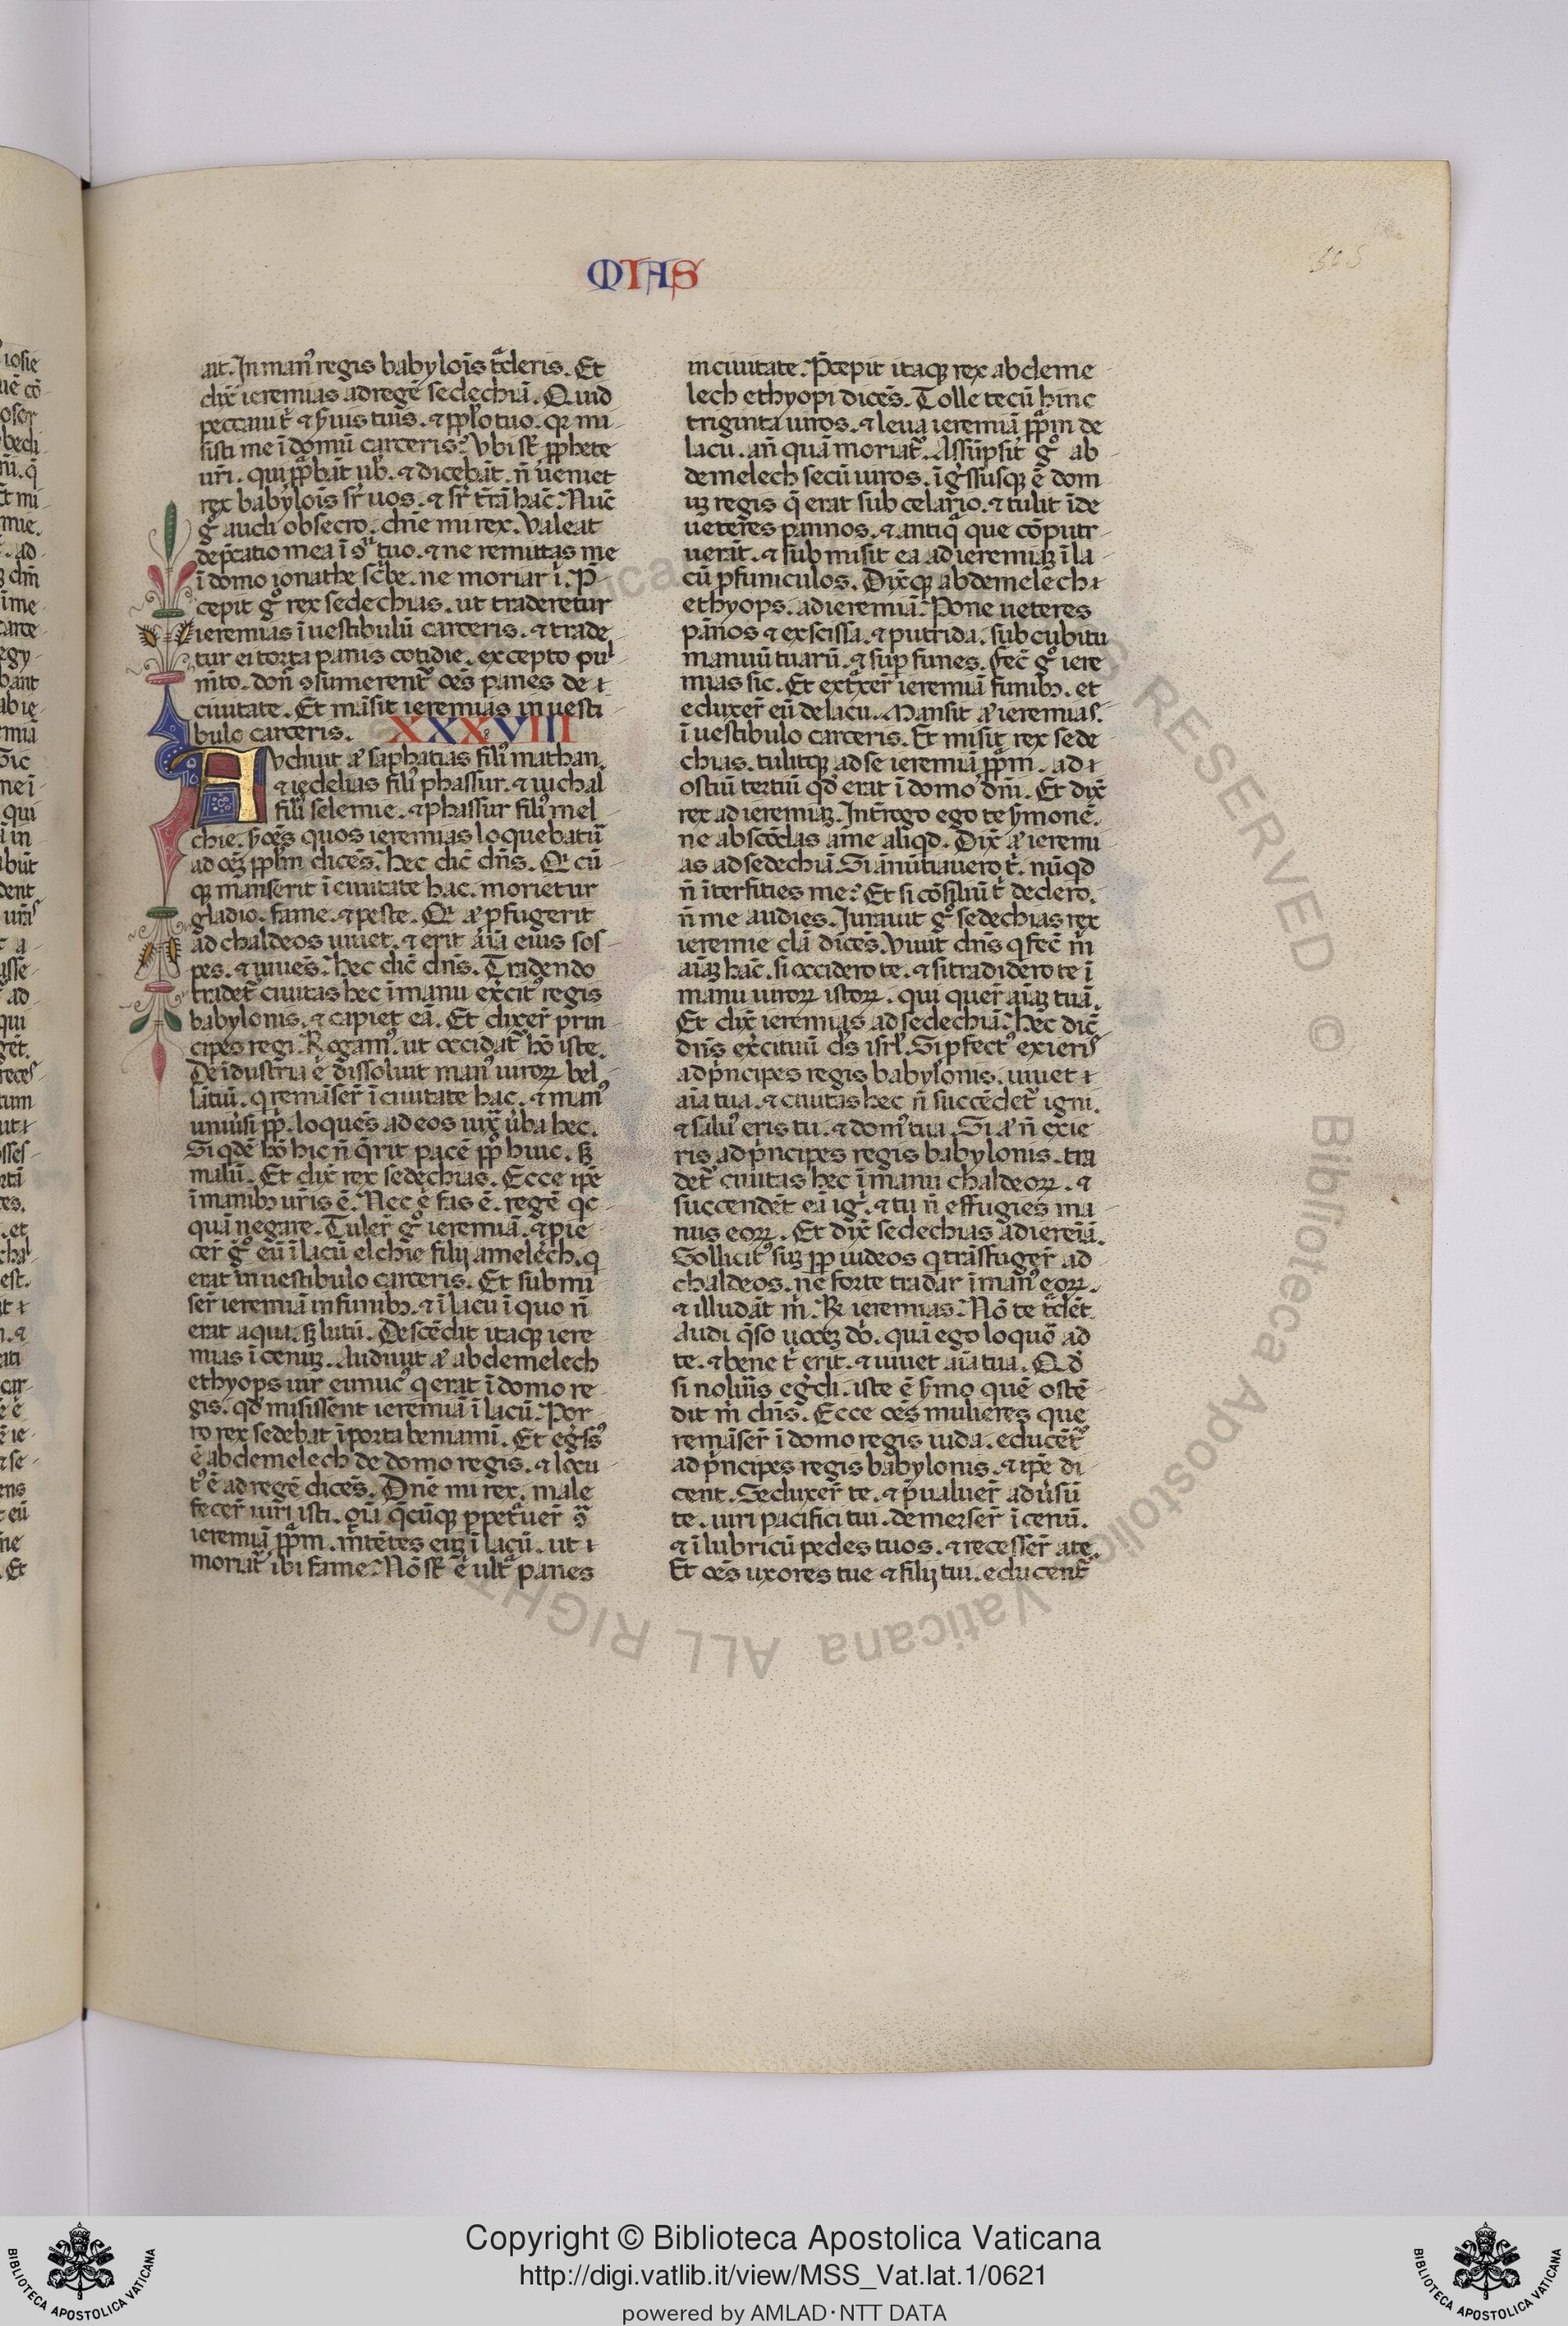 MIAS
505
ait. In man᷒ regis babylõis t̃deris. Et
dix̃ ieremias ad regẽ sedechiã. Quid
peccaui t̃ ⁊ ẜuis tuis. ⁊ pp̃lo tuo. qꝛ mi-
sisti me ĩ domũ carceris? Vbi sũt ꝓphete
ur̃i. qui ꝓphãbãt uob. ⁊ dicebãt. ñ ueniet
rex babylõis sr̃ uos. ⁊ sr̃ t̃rã hãc? Nũc
g̊ audi obsecro. dñe mi rex. Valeat
dep̃catio mea ĩ 9spectu tuo. ⁊ ne remittas me
ĩ domo ionathe sc̃be. ne moriar ĩ. P̃-
cepit g̊ rex sedechias. ut traderetur
ieremias ĩ uestibulũ carceris. ⁊ trade-
tur ei torta panis cotidie. excepto pul-
mẽto. don̄ 9sumerent᷑ oẽs panes de
ciuitate. Et mãsit ieremias in uesti
bulo carceris. XXXVIII
Audiuit aũt saphatias fili᷒ mathan.
⁊ iedelias fili᷒ phassur. ⁊ iuchal
fili᷒ selemie. ⁊ phassur fili᷒ mel
chie. ẜões quos ieremias loquebatũ
ad oẽꝫ pp̃lm dicẽs. hec dic̃ dñs. Qi cũ
qꝫ mãnserit ĩ ciuitate hac. morietur
gladio. fame. ⁊ peste. Qi aũt ꝓfugerit
ad chaldeos uiuet. ⁊ erit aĩa eius sos-
pes. ⁊ uiuẽs. hec dic̃ dñs. Tradendo
tradet᷑ ciuitas hec ĩ manu exẽcit᷒ regis
babylonis. ⁊ capiet eã. Et dixer̃ prin-
cipes regi. Rogam᷒. ut occidat᷑ hõ iste.
De ĩdustria eĩ dissoluit man᷒ uiroꝝ bel-
lãtiũ. q remãser̃ ĩ ciuitate hac. ⁊ man᷒
uniũsi pp̃li. loquẽs ad eos iuxͣ ũba hec.
Si qdẽ hõ hic ñ q̃rit pacẽ pp̃lo huic. sꝫ
malũ. Et dix̃ rex sedechias. Ecce ip̃e
ĩ manibꝫ ur̃is ẽ. Nec eĩ fas ẽ. regẽ qc-
quã negare. Tuler̃ g̊ ieremiã. ⁊ ꝓie-
cer̃ g̊ eũ ĩ lacũ elchie filij amelech. q
erat in uestibulo carceris. Et submi-
ser̃ ieremiã in funibꝫ. ⁊ ĩ lacu ĩ quo ñ
erat aqua. sꝫ lutũ. Descẽdit itaqꝫ iere-
mias ĩ cenuꝫ. Audiuit aũt abdemelech
ethyops uir eunuc᷒ q erat ĩ domo re-
gis. qđ misissent ieremiã ĩ lacũ. Por-
ro rex sedebat ĩ porta beniamĩ. Et eg̃ss᷒
ẽ abdemelech de domo regis. ⁊ locu-
t᷒ ẽ ad regẽ dicẽs. Dñe mi rex. male
fecer̃ uiri isti. oĩa q̃cũqꝫ ꝑpetͣuer̃ 9ͣ
ieremiã ꝓphͣm. mĩtẽtes euꝫ ĩ lacũ. ut
moriat᷑ ibi fame. Nõ sũt eĩ ultͣ panes
in ciuitate. P̃cepit itaqꝫ rex abdeme
lech ethyopi dicẽs. Tolle tecũ hinc
triginta uiros. ⁊ leua ieremiã ꝓphͣm de
lacu. añ quã moriat᷑. Assũpsit g̊ ab-
demelech secũ uiros. ĩgr̃ssusqꝫ ẽ dom
uꝫ regis q̃ erat sub celario. ⁊ tulit ĩde
ueteres pannos. ⁊ antiqͣ que cõputr
uerãt. ⁊ submisit ea ad ieremiaꝫ ĩ la
cũ ꝑ funiculos. Dix̃qꝫ abdemelech
ethyops. ad ieremiã. Pone ueteres
pãnos ⁊ excissa. ⁊ putrida. sub cubitu
manuũ tuarũ. ⁊ suꝑ funes. Fec̃ g̊ iere
mias sic. Et extͣxer̃ ieremiã funibꝫ. et
eduxer̃ eũ de lacu. Mansit aũt ieremias.
ĩ uestibulo carceris. Et misit rex sede
chias. tulitqꝫ ad se ieremiã ꝓphͣm. ad
ostiũ tertiũ qđ erat ĩ domo dñi. Et dix̃
rex ad ieremiaꝫ. Int̃rogo ego te ẜmonẽ.
ne abscõdas a me aliqd. Dix̃ aũt ieremi
as ad sedechiã. Si ãnũtiauero t̃. nũqd
ñ ĩterficies me? Et si cõsiliũ t̃ dedero.
ñ me audies. Iurauit g̊ sedechias rex
ieremie clã dicẽs. Viuit dñs q fec̃ m̃
aĩaꝫ hãc. si occidero te. ⁊ si tradidero te ĩ
manu uiroꝝ istoꝝ. qui quer̃ aĩaꝫ tuã.
Et dix̃ ieremias ad sedechiã. hec dic̃
dñs exẽcituũ ds isrl. Si ꝓfect᷒ exieris
ad p̃ncipes regis babylonis. uiuet
aĩa tua. ⁊ ciuitas hec ñ succẽdet᷑ igni.
⁊ salu᷒ eris tu. ⁊ dom᷒ tua. Si aũt ñ exie
ris ad p̃ncipes regis babylonis. tra
det᷑ ciuitas hec ĩ manu chaldeoꝝ. ⁊
succendẽt eã igĩ. ⁊ tu ñ effugies ma
nus eoꝝ. Et dix̃ sedechias ad ieremiã.
Sollicit᷒ suꝫ ꝓpͭ iudeos q trãsfuger̃ ad
chaldeos. ne forte tradar ĩ man᷒ eoꝝ.
⁊ illudãt m̃. R̃ ieremias. Nõ te tͣdẽt.
Audi q̃so uoceꝫ dñi. quã ego loquor ad
te. ⁊ bene t̃ erit. ⁊ uiuet aĩa tua. Qđ
si nolũis eg̃di. iste ẽ ẜmo quẽ ostẽ
dit m̃ dñs. Ecce oẽs mulieres que
remãser̃ ĩ domo regis iuda. educẽt᷑
ad p̃ncipes regis babylonis. ⁊ ip̃e di
cent. Seduxer̃ te. ⁊ p̃ualuer̃ adũsũ
te. uiri pacifici tui. demerser̃ ĩ cenũ.
⁊ ĩ lubricũ pedes tuos. ⁊ recesser̃ a te.
Et oẽs uxores tue ⁊ filij tui. educent᷑
Copyright © Biblioteca Apostolica Vaticana
http://digi.vatlib.it/view/MSS_Vat.lat.1/0621
powered by AMLAD·NTT DATA